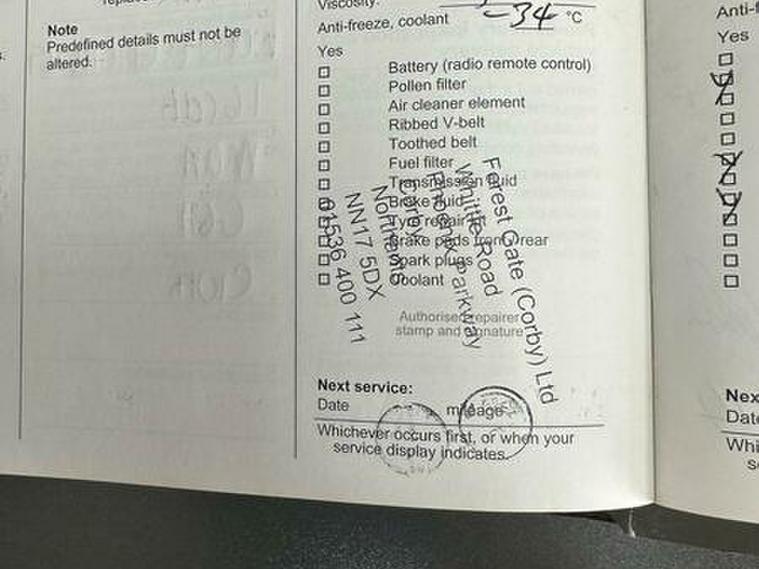 Note
Predefined details must not be
altered.
Viscosity:
Anti-freeze, coolant -34 °C
Yes
Battery (radio remote control)
Pollen filter
Air cleaner element
Ribbed V-belt
Toothed belt
Fuel filter
Transmission fluid
Brake fluid
Tyre repair kit
Brake pads front/rear
Spark plugs
Coolant
Forest Gate (Corby) Ltd
Whittle Road
Phoenix Parkway
Corby
Northants
NN17 5DX
01536 400 111
Authorised repairer
stamp and signature
Next service:
Date mileage
Whichever occurs first, or when your
service display indicates.
Yes